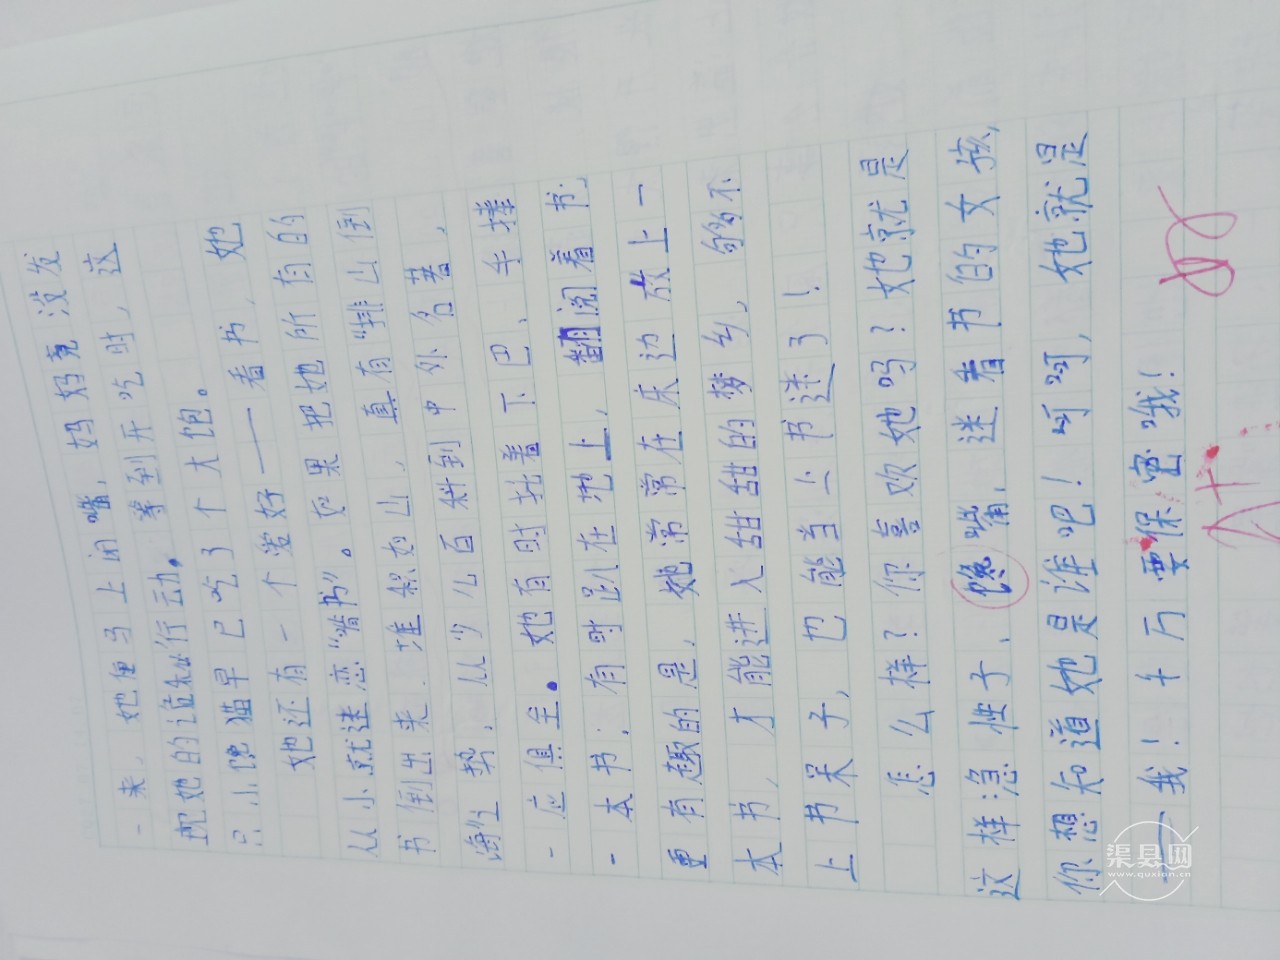 一来，她便马上闭嘴，妈妈竟没发
现她的诡秘行动。等到开吃时，这
只小馋猫早已吃了个大饱。
她还有一个爱好——看书，她
从小就迷恋“啃书”。如果把她所有的
书倒出来，堆积如山，真有“排山倒
海”之势，从少儿百科到中外名著，
一应俱全。她有时托着下巴，手捧
一本书；有时趴在地上，翻阅着书。
更有趣的是，她常常在床边放上一
本书，才能进入甜甜的梦乡，够不
上书呆子，也能当上书迷了！
怎么样？你喜欢她吗？她就是
这样急性子、馋嘴，迷看书的女孩，
你想知道她是谁吧！呵呵，她就是
——我！千万要保密哦！
A+
渠县网
www.quxian.cn